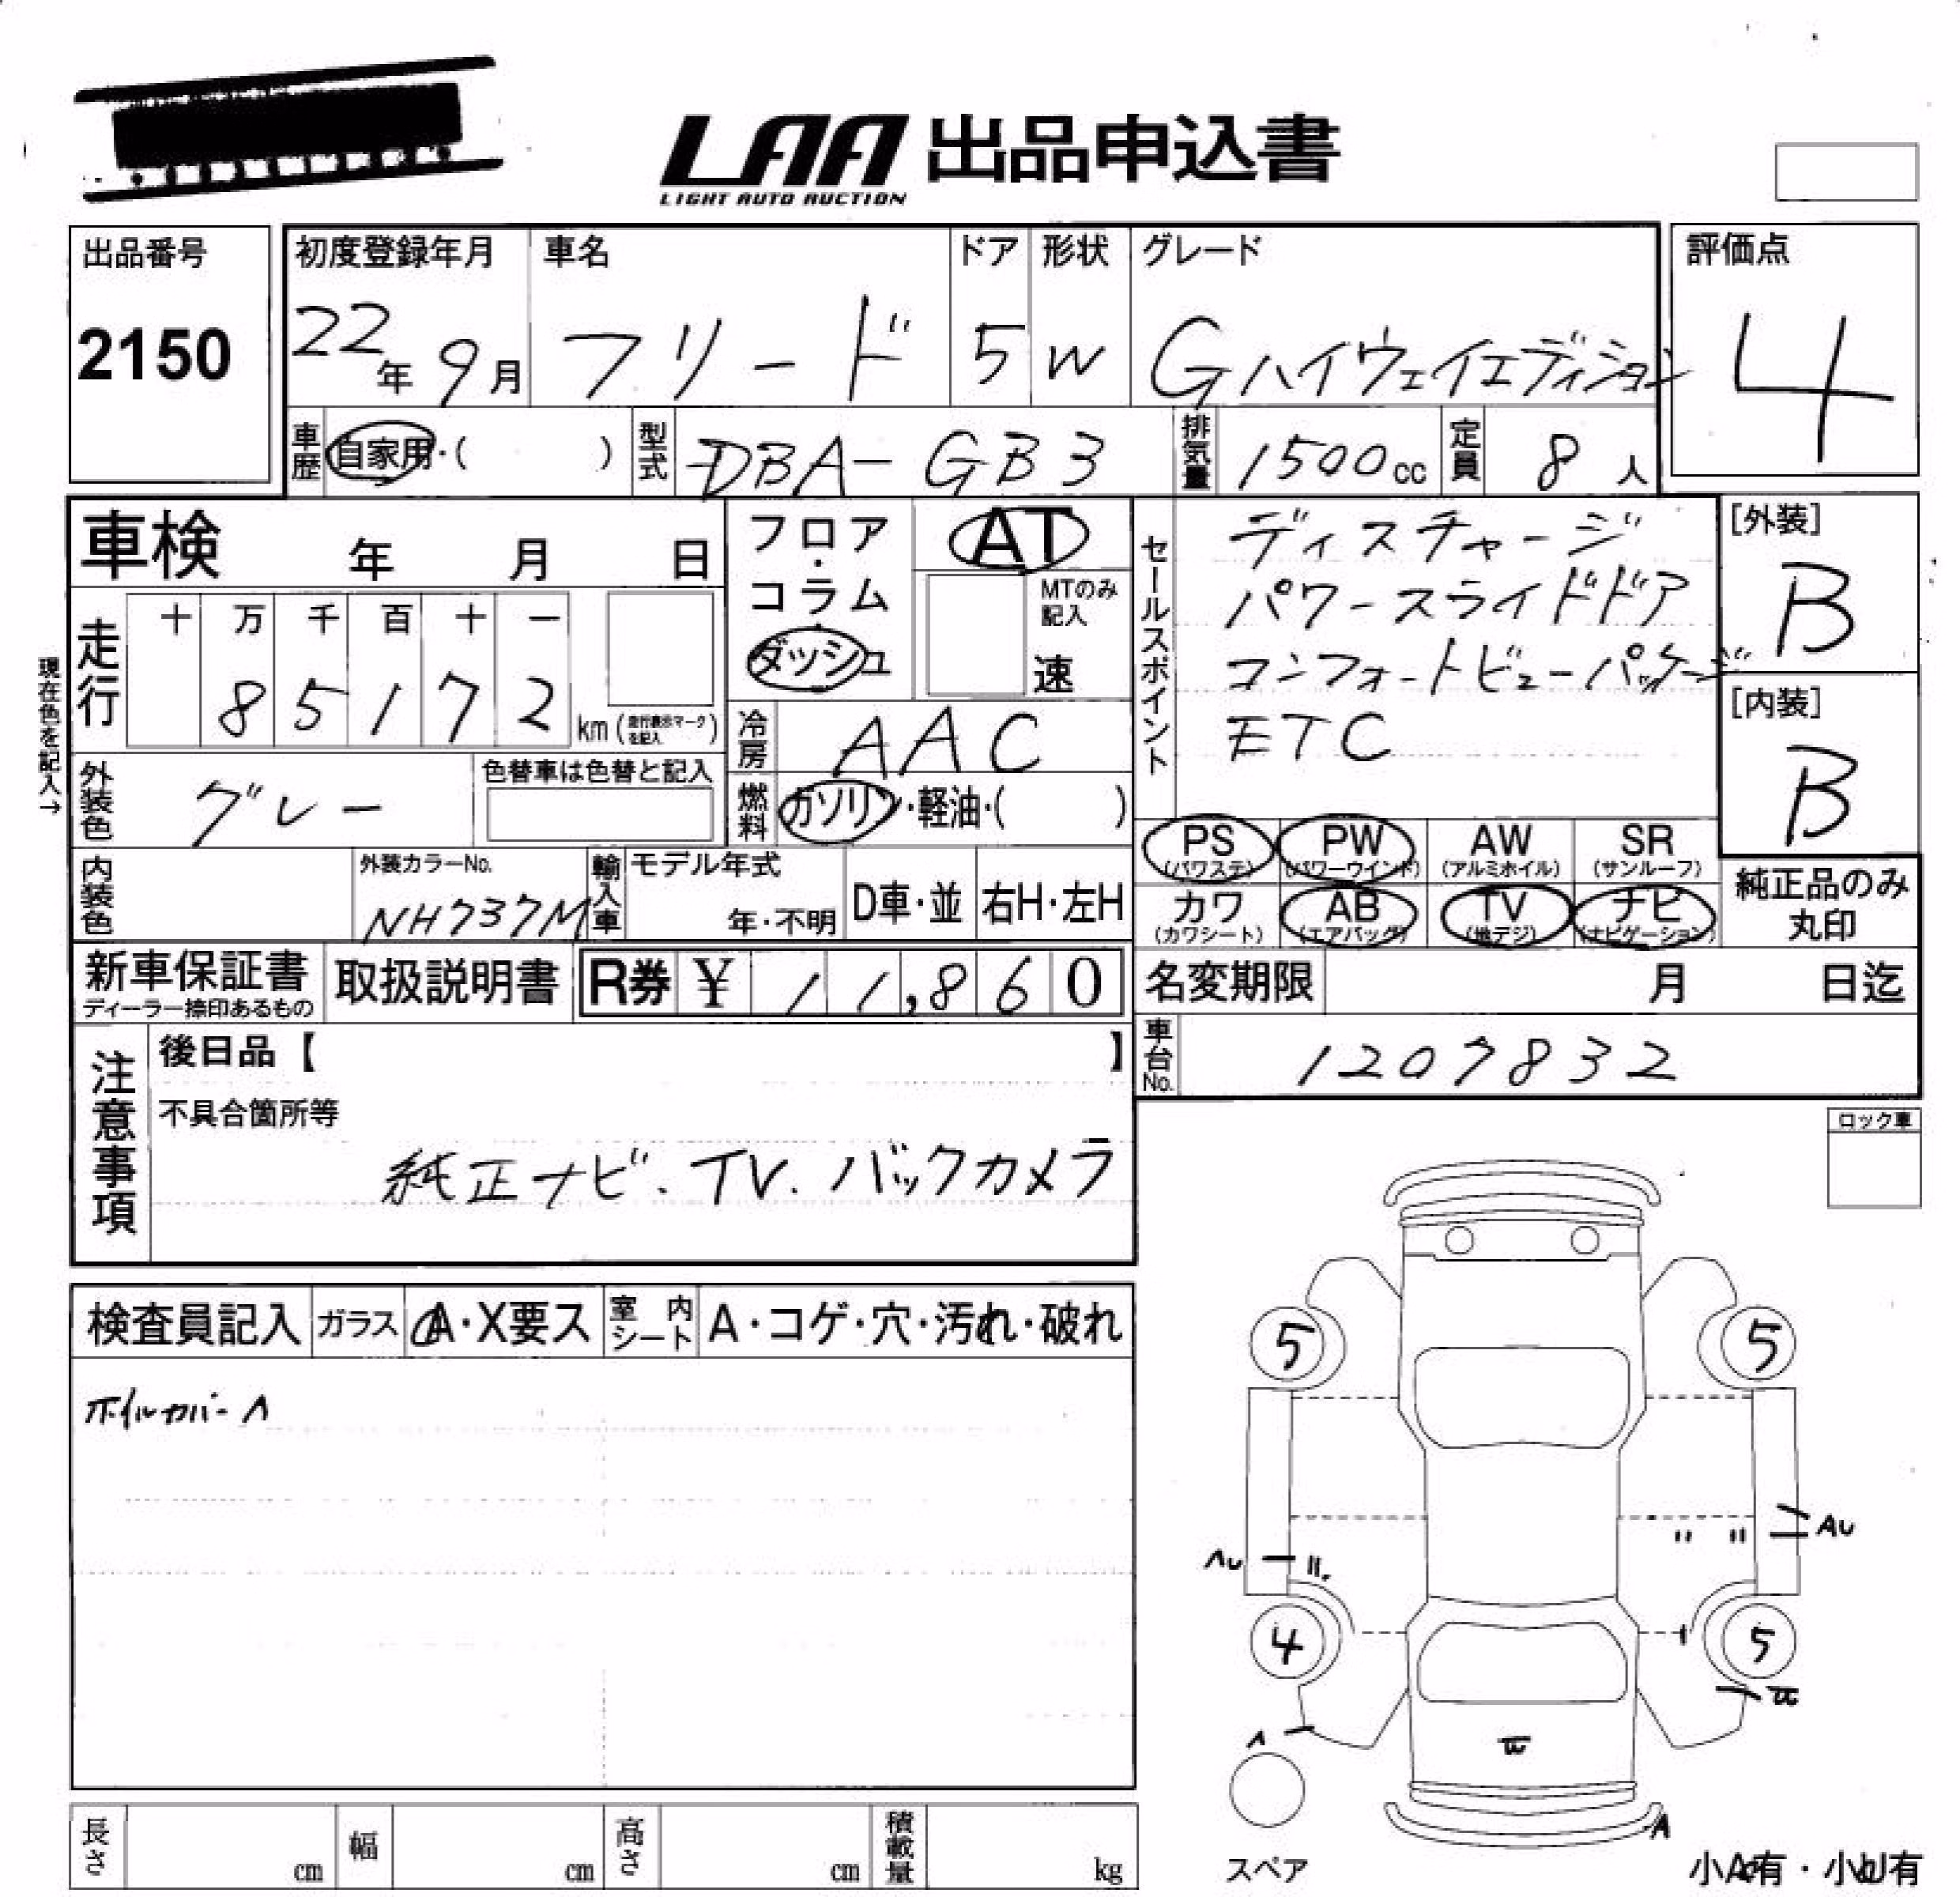 LAA 出品申込書
LIGHT AUTO AUCTION
出品番号
2150
初度登録年月
22年 9月
車名
フリード
ドア
5
形状
W
グレード
Gハイウェイエディション
評価点
4
車歴
自家用・( )
型式
DBA-GB3
排気量
1500cc
定員
8人
車検 年 月 日
フロア・コラム・ダッシュ
AT
MTのみ記入
速
セールスポイント
ディスチャージ
パワースライドドア
コンフォートビューパッケージ
ETC
[外装]
B
[内装]
B
現在色を記入→
走行
十 万 千 百 十 一
8 5 1 7 2 km (走行表示マークを記入)
冷房
AAC
外装色
グレー
色替車は色替と記入
燃料
ガソリン・軽油・( )
PS (パワステ)
PW (パワーウインド)
AW (アルミホイル)
SR (サンルーフ)
カワ (カワシート)
AB (エアバッグ)
TV (地デジ)
ナビ (ナビゲーション)
純正品のみ丸印
内装色
外装カラーNo.
NH737M
輸入車
モデル年式
年・不明
D車・並
右H・左H
新車保証書
ディーラー捺印あるもの
取扱説明書
R券 ¥ 11,860
名変期限 月 日迄
車台No.
1207832
注意事項
後日品【 】
不具合箇所等
純正ナビ.TV.バックカメラ
ロック車
検査員記入
ガラス
A・X要ス
室内シート
A・コゲ・穴・汚れ・破れ
ホイルカバーA
5 5
AU
AU
4 5
A
A
スペア
小A有・小U有
長さ cm
幅 cm
高さ cm
積載量 kg